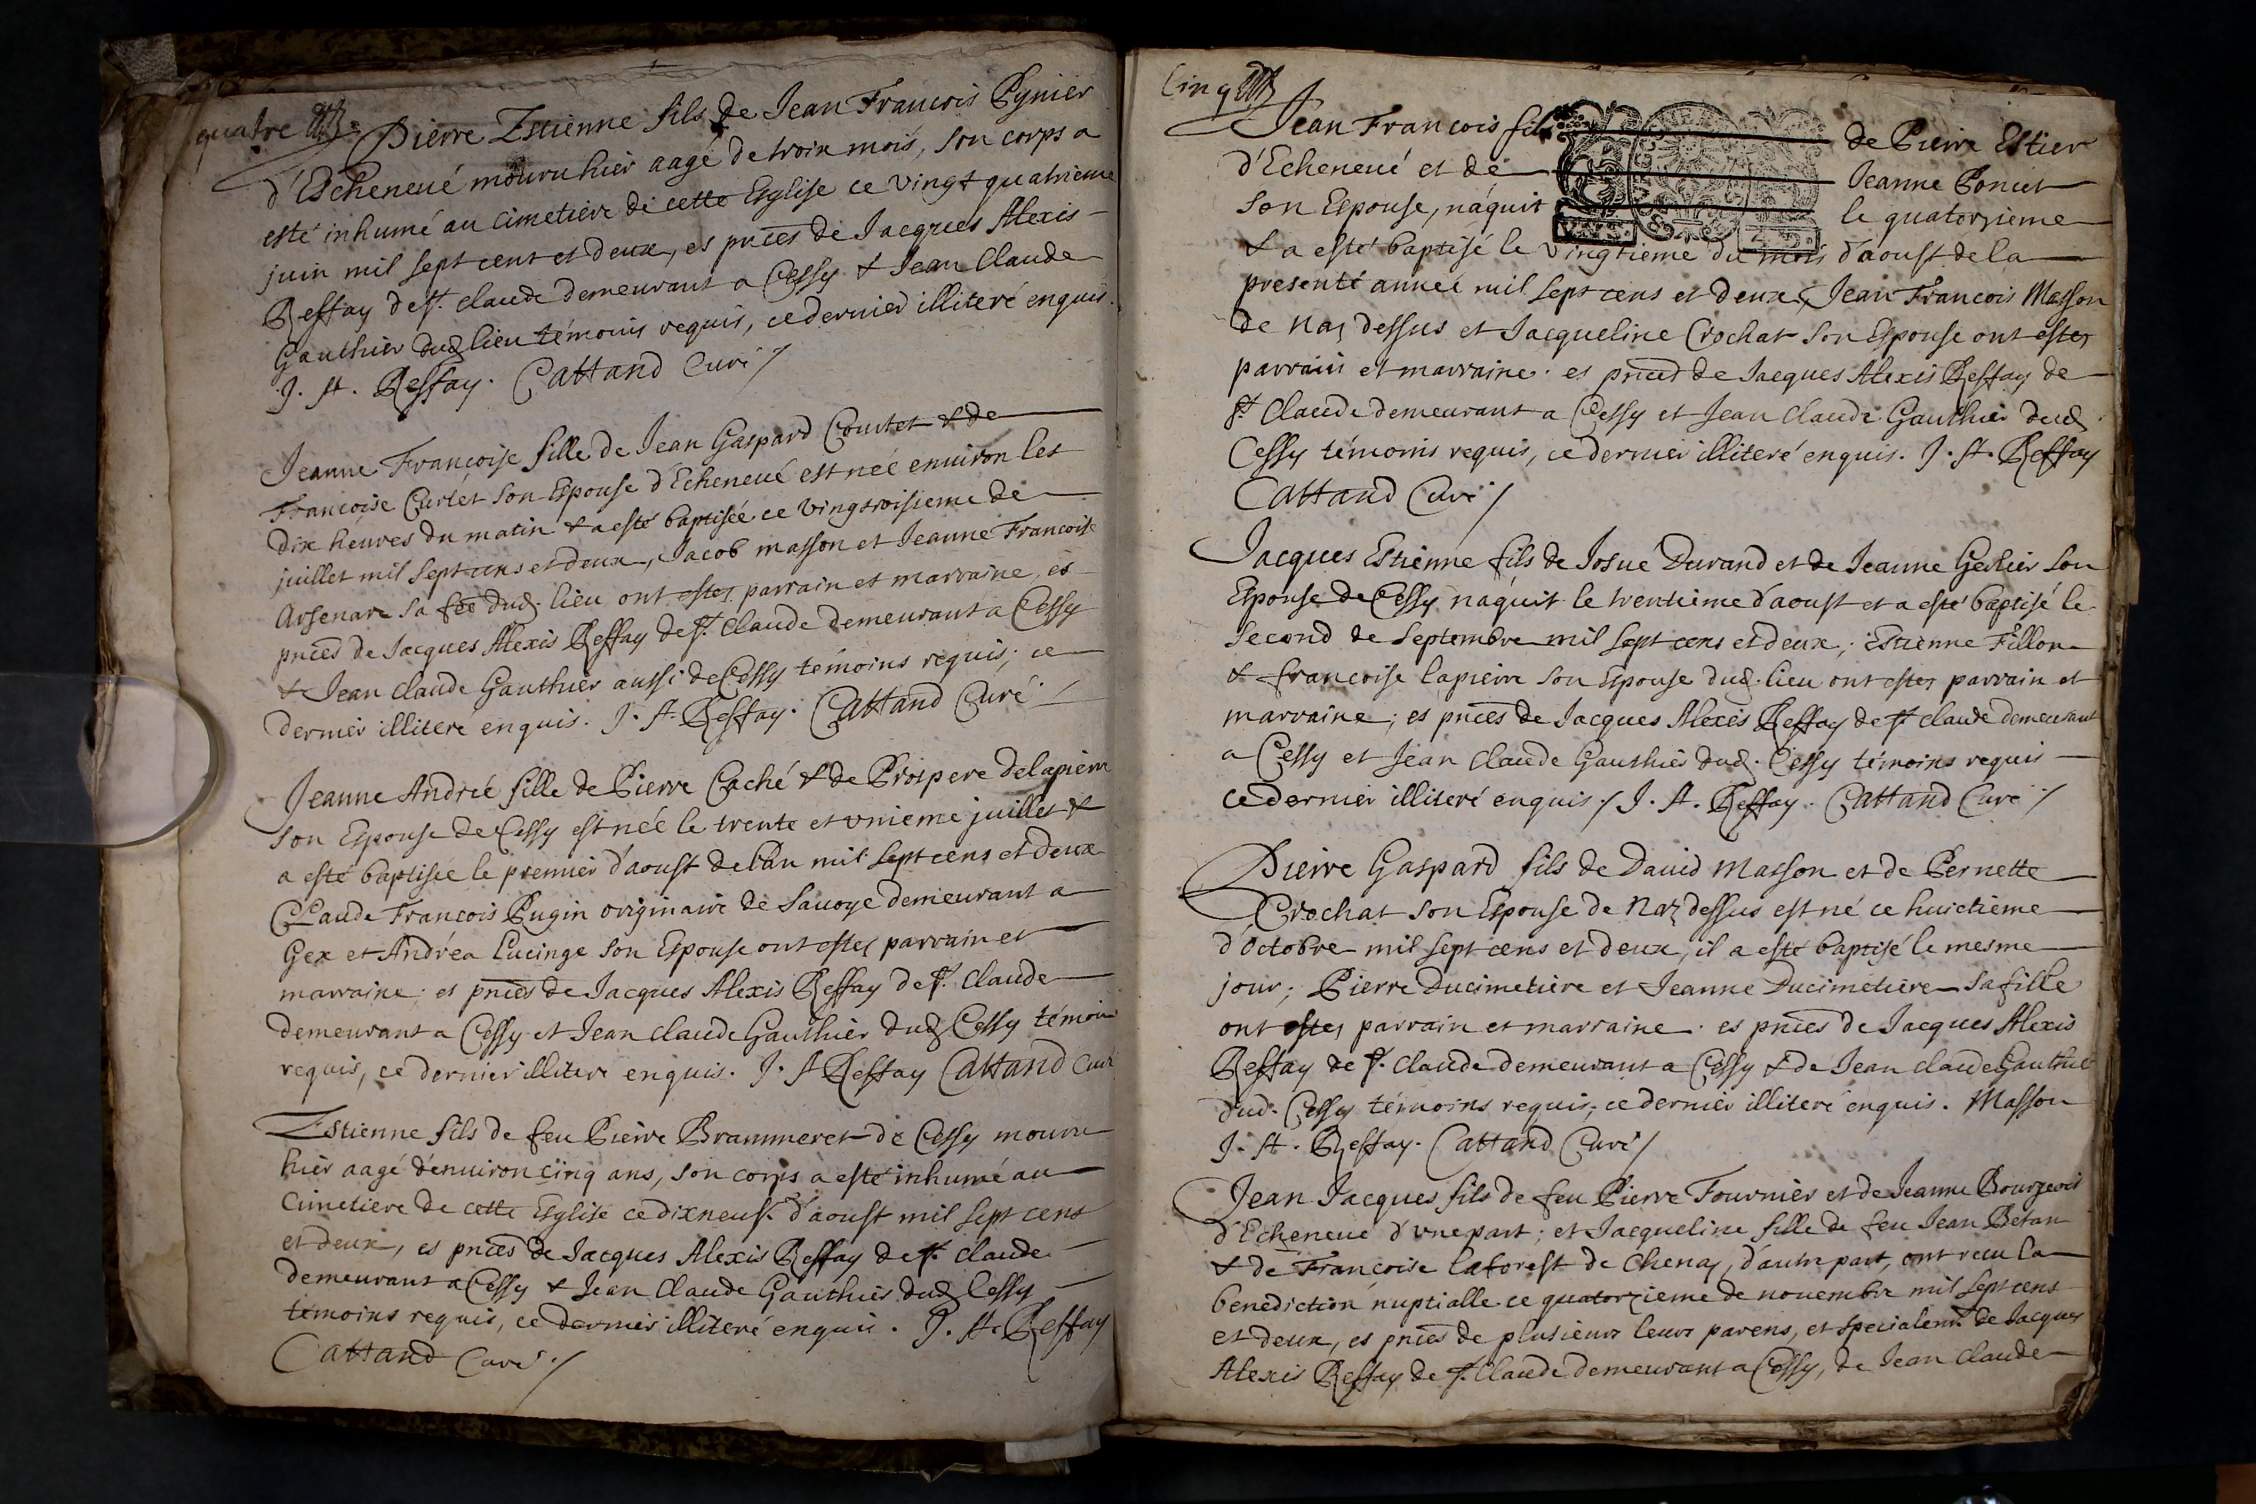 quatre
Pierre Estienne fils de Jean Francois Pynier
d'Escheneué mouru hier aagé de troix mois, son corps a
esté inhumé au cimetiere de cette Esglise ce vingt quatrieme
juin mil sept cent et deux, es pnces de Jacques Alexis
Reffay de st. claude demeurant a Cessy & Jean Claude
Gauthier dud lieu témoins requis, ce dernier illiteré enquis.
J. A. Reffay. Cattand Curé /
Jeanne Francoise fille de Jean Gaspard Courtet & de
Francoise Curlet son Espouse d'Echeneué est née enuiron les
dix heures du matin & a esté baptisée ce vingtroisieme de
juillet mil sept cens et deux, Jacob masson et Jeanne Francoise
Arsenare sa fée dud. lieu ont estez parrain et marraine, es
pnces de Jacques Alexis Reffay de st. Claude demeurant a Cessy
& Jean claude Gauthier aussi de Cessy témoins requis; ce
dernier illiteré enquis. J. A. Reffay. Cattand Curé /
Jeanne Andréé fille de Pierre Caché & de Prospere Delapierre
son Espouse de Cessy est née le trente et vnieme juillet &
a esté baptisée le premier d'aoust de l'an mil sept cens et deux
Claude Francois Pugin originaire de Sauoye demeurant a
Gex et Andréa Lucinge son Espouse ont estez parrain et
marraine; es pnces de Jacques Alexis Reffay de st. Claude
demeurant a Cessy et Jean claude Gauthier dud Cessy témoins
requis, ce dernier illiteré enquis. J. A Reffay Cattand Curé
Estienne fils de feu Pierre Brammeret de Cessy mouru
hier aagé d'enuiron cinq ans, son corps a esté inhumé au
Cimetiere de cette Esglise ce dixneuf. d'aoust mil sept cens
et deux, es pnces de Jacques Alexis Reffay de st. claude
demeurant a Cessy & Jean Claude Gauthier dud Cessy
témoins requis, ce dernier illiteré enquis. J. A. Reffay
Cattand Curé ./
Cinq
Jean Francois fils de Pierre Estier
d'Echeneué et de Jeanne Poncet
son Espouse, náquit le quatorzieme
& a esté baptisé le vingtieme du mois d'aoust de la
presente année mil sept cens et deux, Jean Francois Masson
de Naz dessus et Jacqueline Crochat son Espouse ont estez
parrain et marraine. es pnces de Jacques Alexis Reffay de
st Claude demeurant a Cessy et Jean claude Gauthier dud
Cessy témoins requis, ce dernier illiteré enquis. J. A. Reffay
Cattand Curé /
Jacques Estienne fils de Josué Durand et de Jeanne Gerlier son
Espouse de Cessy náquit le trentieme d'aoust et a esté baptisé le
second de Septembre mil sept cens et deux; Estienne Fillon
& francoise lapierre son Espouse dud. lieu ont estez parrain et
marraine; es pnces de Jacques Alexis Reffay de st claude demeurant
a Cessy et Jean Claude Gauthier dud. Cessy témoins requis
ce dernier illiteré enquis / J. A. Reffay. Cattand Curé /
Pierre Gaspard fils de Dauid Masson et de Pernette
Crochat son Espouse de Naz dessus est né ce huictieme
d'Octobre mil sept cens et deux, il a esté baptisé le mesme
jour; Pierre Ducimetiere et Jeanne Ducimetiere sa fille
ont estez parrain et marraine. es pnces de Jacques Alexis
Reffay de st. Claude demeurant a Cessy & de Jean claude Gauthier
dud. Cessy témoins requis, ce dernier illiteré enquis. Masson
J. A. Reffay. Cattand Curé /
Jean Jacques fils de feu Pierre Fournier et de Jeanne Bourgeois
d'Echeneué d'vne part; et Jacqueline fille de feu Jean Betan
& de Francoise laforest de Chenaz, d'autre part, ont receu la
benediction nuptialle ce quatorzieme de nouembre mil sept cens
et deux, es pnces de plusieurs leurs parens, et specialemt de Jacques
Alexis Reffay de st. Claude demeurant a Cessy, de Jean Claude